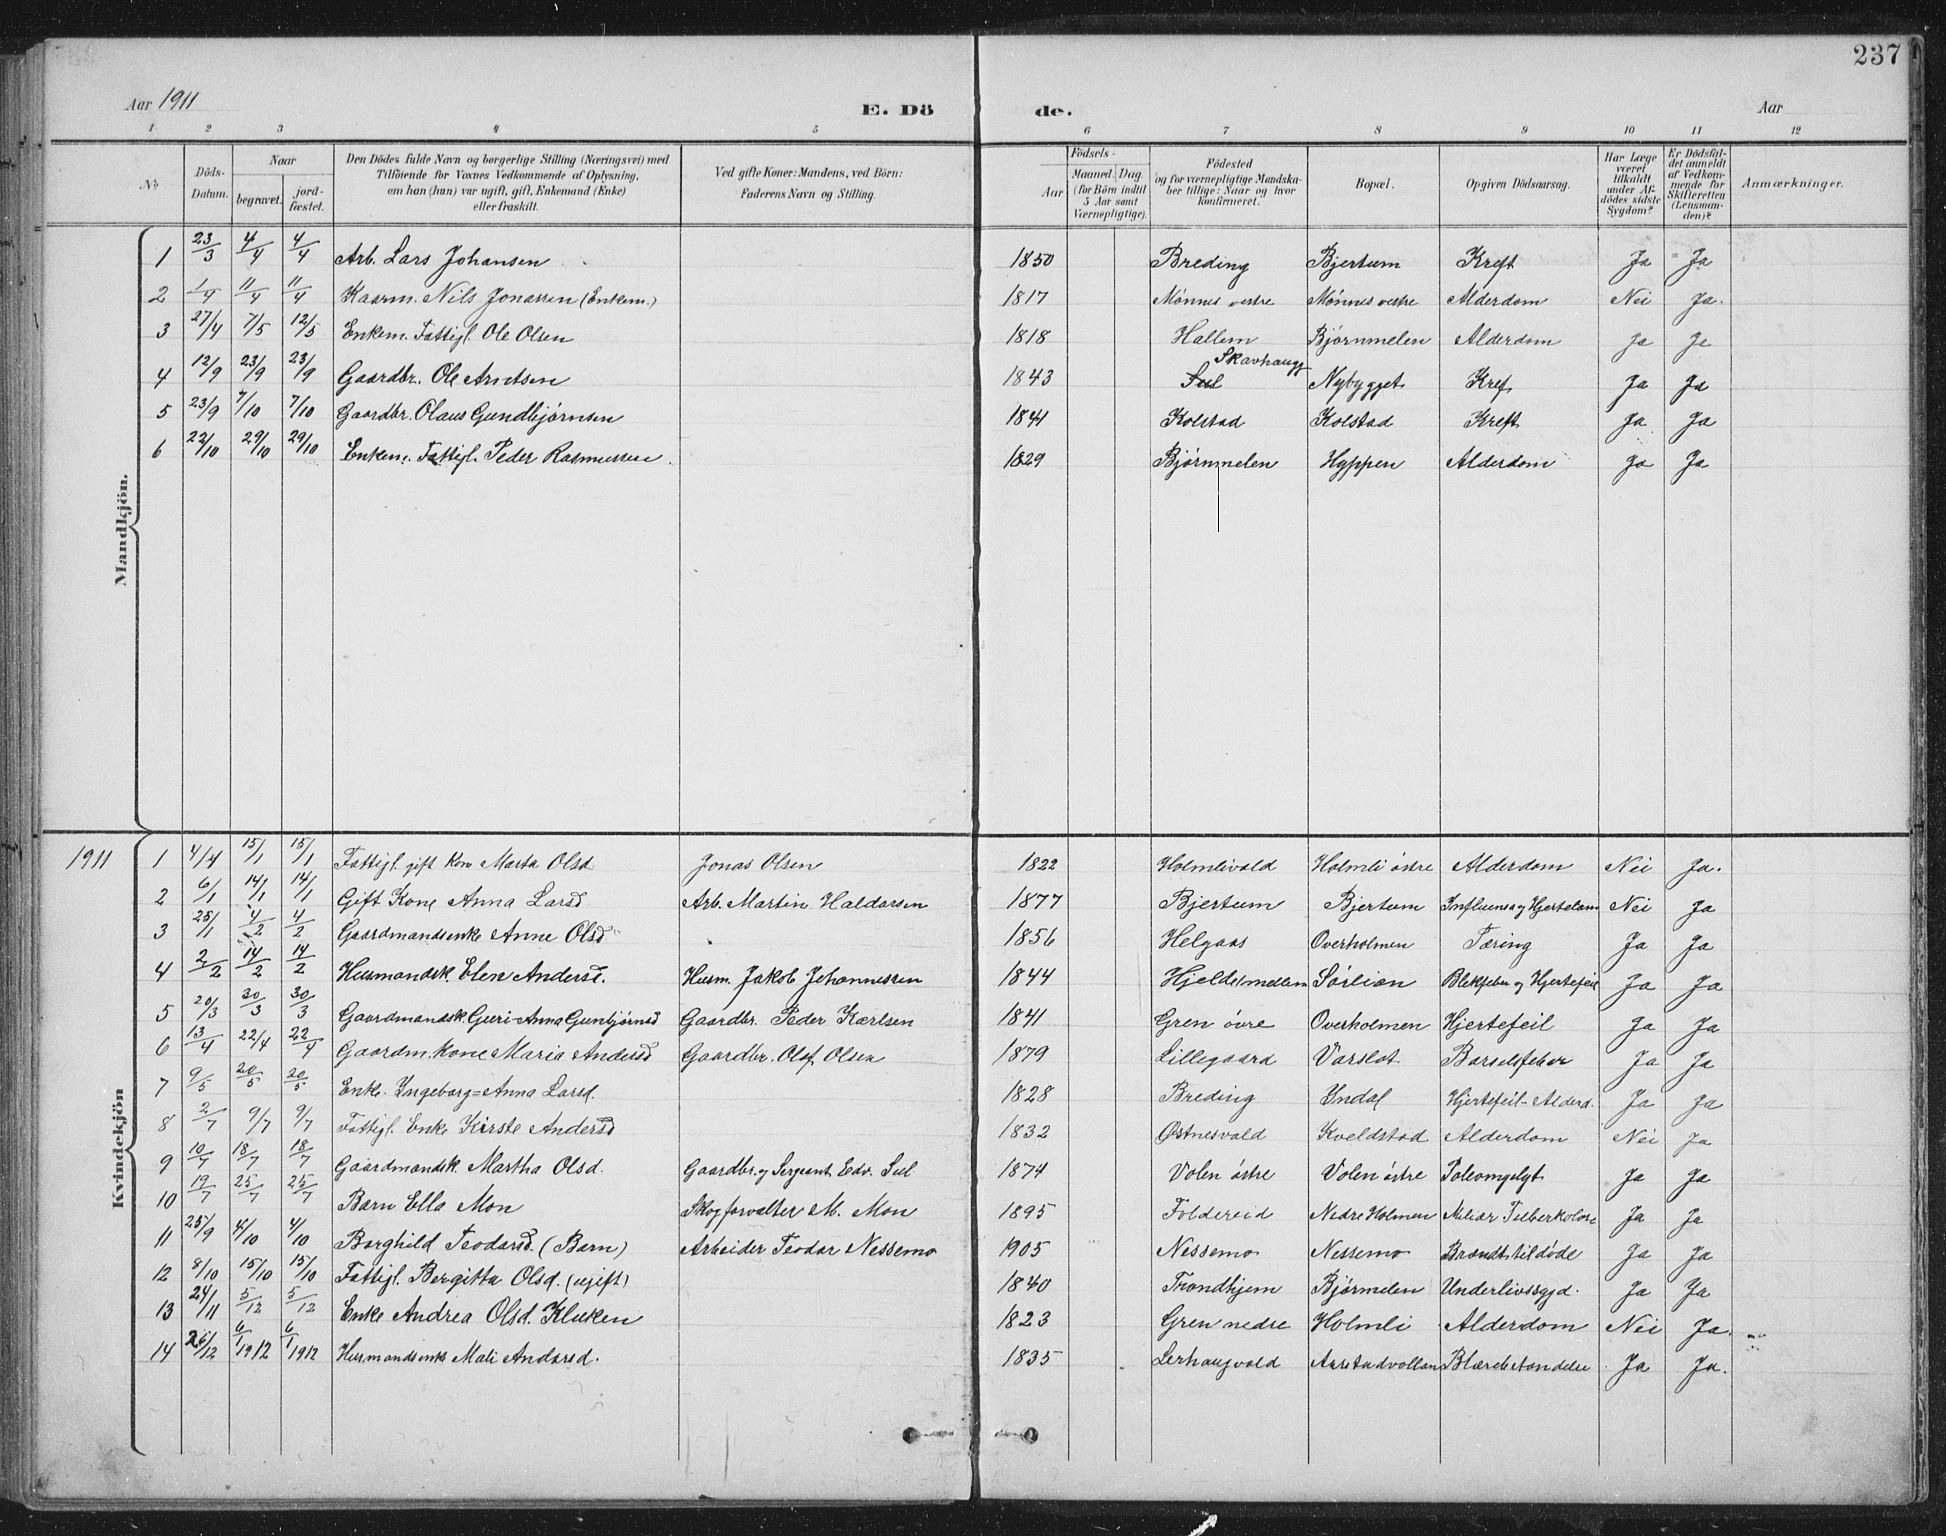 237
Aar 1911 E. Dö de. Aar
1 2 3 4 5 6 7 8 9 10 11 12
№ Döds-Datum. Naar begravet. jordfæstet. Den Dödes fulde Navn og borgerlige Stilling (Næringsvei) med Tilföiende for Voxnes Vedkommende af Oplysning, om han (hun) var ugift, gift, Enkemand (Enke) eller fraskilt. Ved gifte Koner: Mandens, ved Börn: Faderens Navn og Stilling. Födsels- Aar Maaned. Dag. (for Börn indtil 5 Aar samt Værnepligtige). Födested og for værnepligtige Mandskaber tillige: Naar og hvor konfirmeret. Bopæl. Opgiven Dödsaarsag. Har Læge været tilkaldt under Afdödes sidste Sygdom? Er Dödsfaldet anmeldt af Vedkommende for Skifteretten (Lensmanden)? Anmærkninger.
Mandkjön.
1 23/3 4/4 4/4 Arb. Lars Johansen 1850 Breding Bjertum Kreft Ja Ja
2 1/4 11/4 11/4 Kaarm. Nils Jonassen (Enkem.) 1817 Mønnes vestre Mønnes vestre Alderdom Nei Ja.
3 27/4 7/5 12/5 Enkem. Fattigl. Ole Olsen 1818 Hallem Bjørnmelen Alderdom Ja Ja
Skavhaugg
4 12/9 23/9 23/9 Gaardbr. Ole Arntsen 1843 Sul Nybygget Kref Ja Ja
5 23/9 7/10 7/10 Gaardbr. Olaus Gundbjørnsen 1841 Kolstad Kolstad Kreft Ja Ja
6 22/10 29/10 29/10 Enkem. Fattigl. Peder Rasmussen. 1829 Bjørnmelen Hyppen Alderdom Ja Ja
Kvindekjön
1911 1 4/4 15/1 15/1 Fattigl. gift Kone Marta Olsd Jonas Olsen 1822 Holmlivald Holmli östre Alderdom Nei Ja.
2 6/1 14/1 14/1 Gift Kone Anna Larsd Arb. Martin Haldorsen 1877 Bjertum Bjertum Nei Ja
3 25/1 4/2 4/2 Gaardmandsenke Anne Olsd 1856 Helgaas Overholmen Tæring Ja Ja
4 2/2 14/2 14/2 Husmandsk. Elen Andersd. Husm. Jakob Johannessen 1844 Hjeldemellem Sørlien Blekfeber og Hjertefeil Ja Ja
5 20/3 30/3 30/3 Gaardmandsk. Guri-Anna Gunbjørnsd Gaardbr. Peder Karlsen 1841 Gren övre Overholmen Hjertefeil Ja Ja
6 13/4 22/4 22/4 Gaardm. Kone Maria Andersd Gaardbr. Olof Olsen 1879 Lillegaard Varslot Barselsfeber Ja Ja
7 9/5 20/5 20/5 Enke. Ingeborg=Anna Larsd. 1828 Breding Yndal Hjertefeil-Alderd. Ja Ja
8 2/7 9/7 9/7 Fattigl. Enke Kirste Andersd 1832 Østnesvald Kveldstad Alderdom Nei Ja
9 10/7 18/7 18/7 Gaardmandsk. Martha Olsd. Gaardbr. og Sergeant Edv. Sul 1874 Volen östre Volen östre Ja Ja
10 19/7 25/7 25/7 Barn Ella Mon Skogforvalter M. Mon 1895 Foldereid Nedre Holmen Miliær Tuberkolose Ja Ja
11 25/9 4/10 4/10 Borghild Teodorsd. (Barn) Arbeider Teodor Nessemo 1905 Nessemo Nessemo Brændt tildøde Ja Ja
12 8/10 15/10 15/10 Fattigl. Bergitta Olsd. (ugift) 1840 Trondhjem Bjørmelen Underlivssygd. Ja Ja
13 24/11 5/12 5/12 Enke Andrea Olsd. Kluken 1823 Gren nedre Holmli Alderdom Nei Ja.
14 26/12 6/1 1912 6/1 1912 Husmandsenke Mali Andersd. 1835 Lerhaugvald Aurstadvollan Ja Ja.